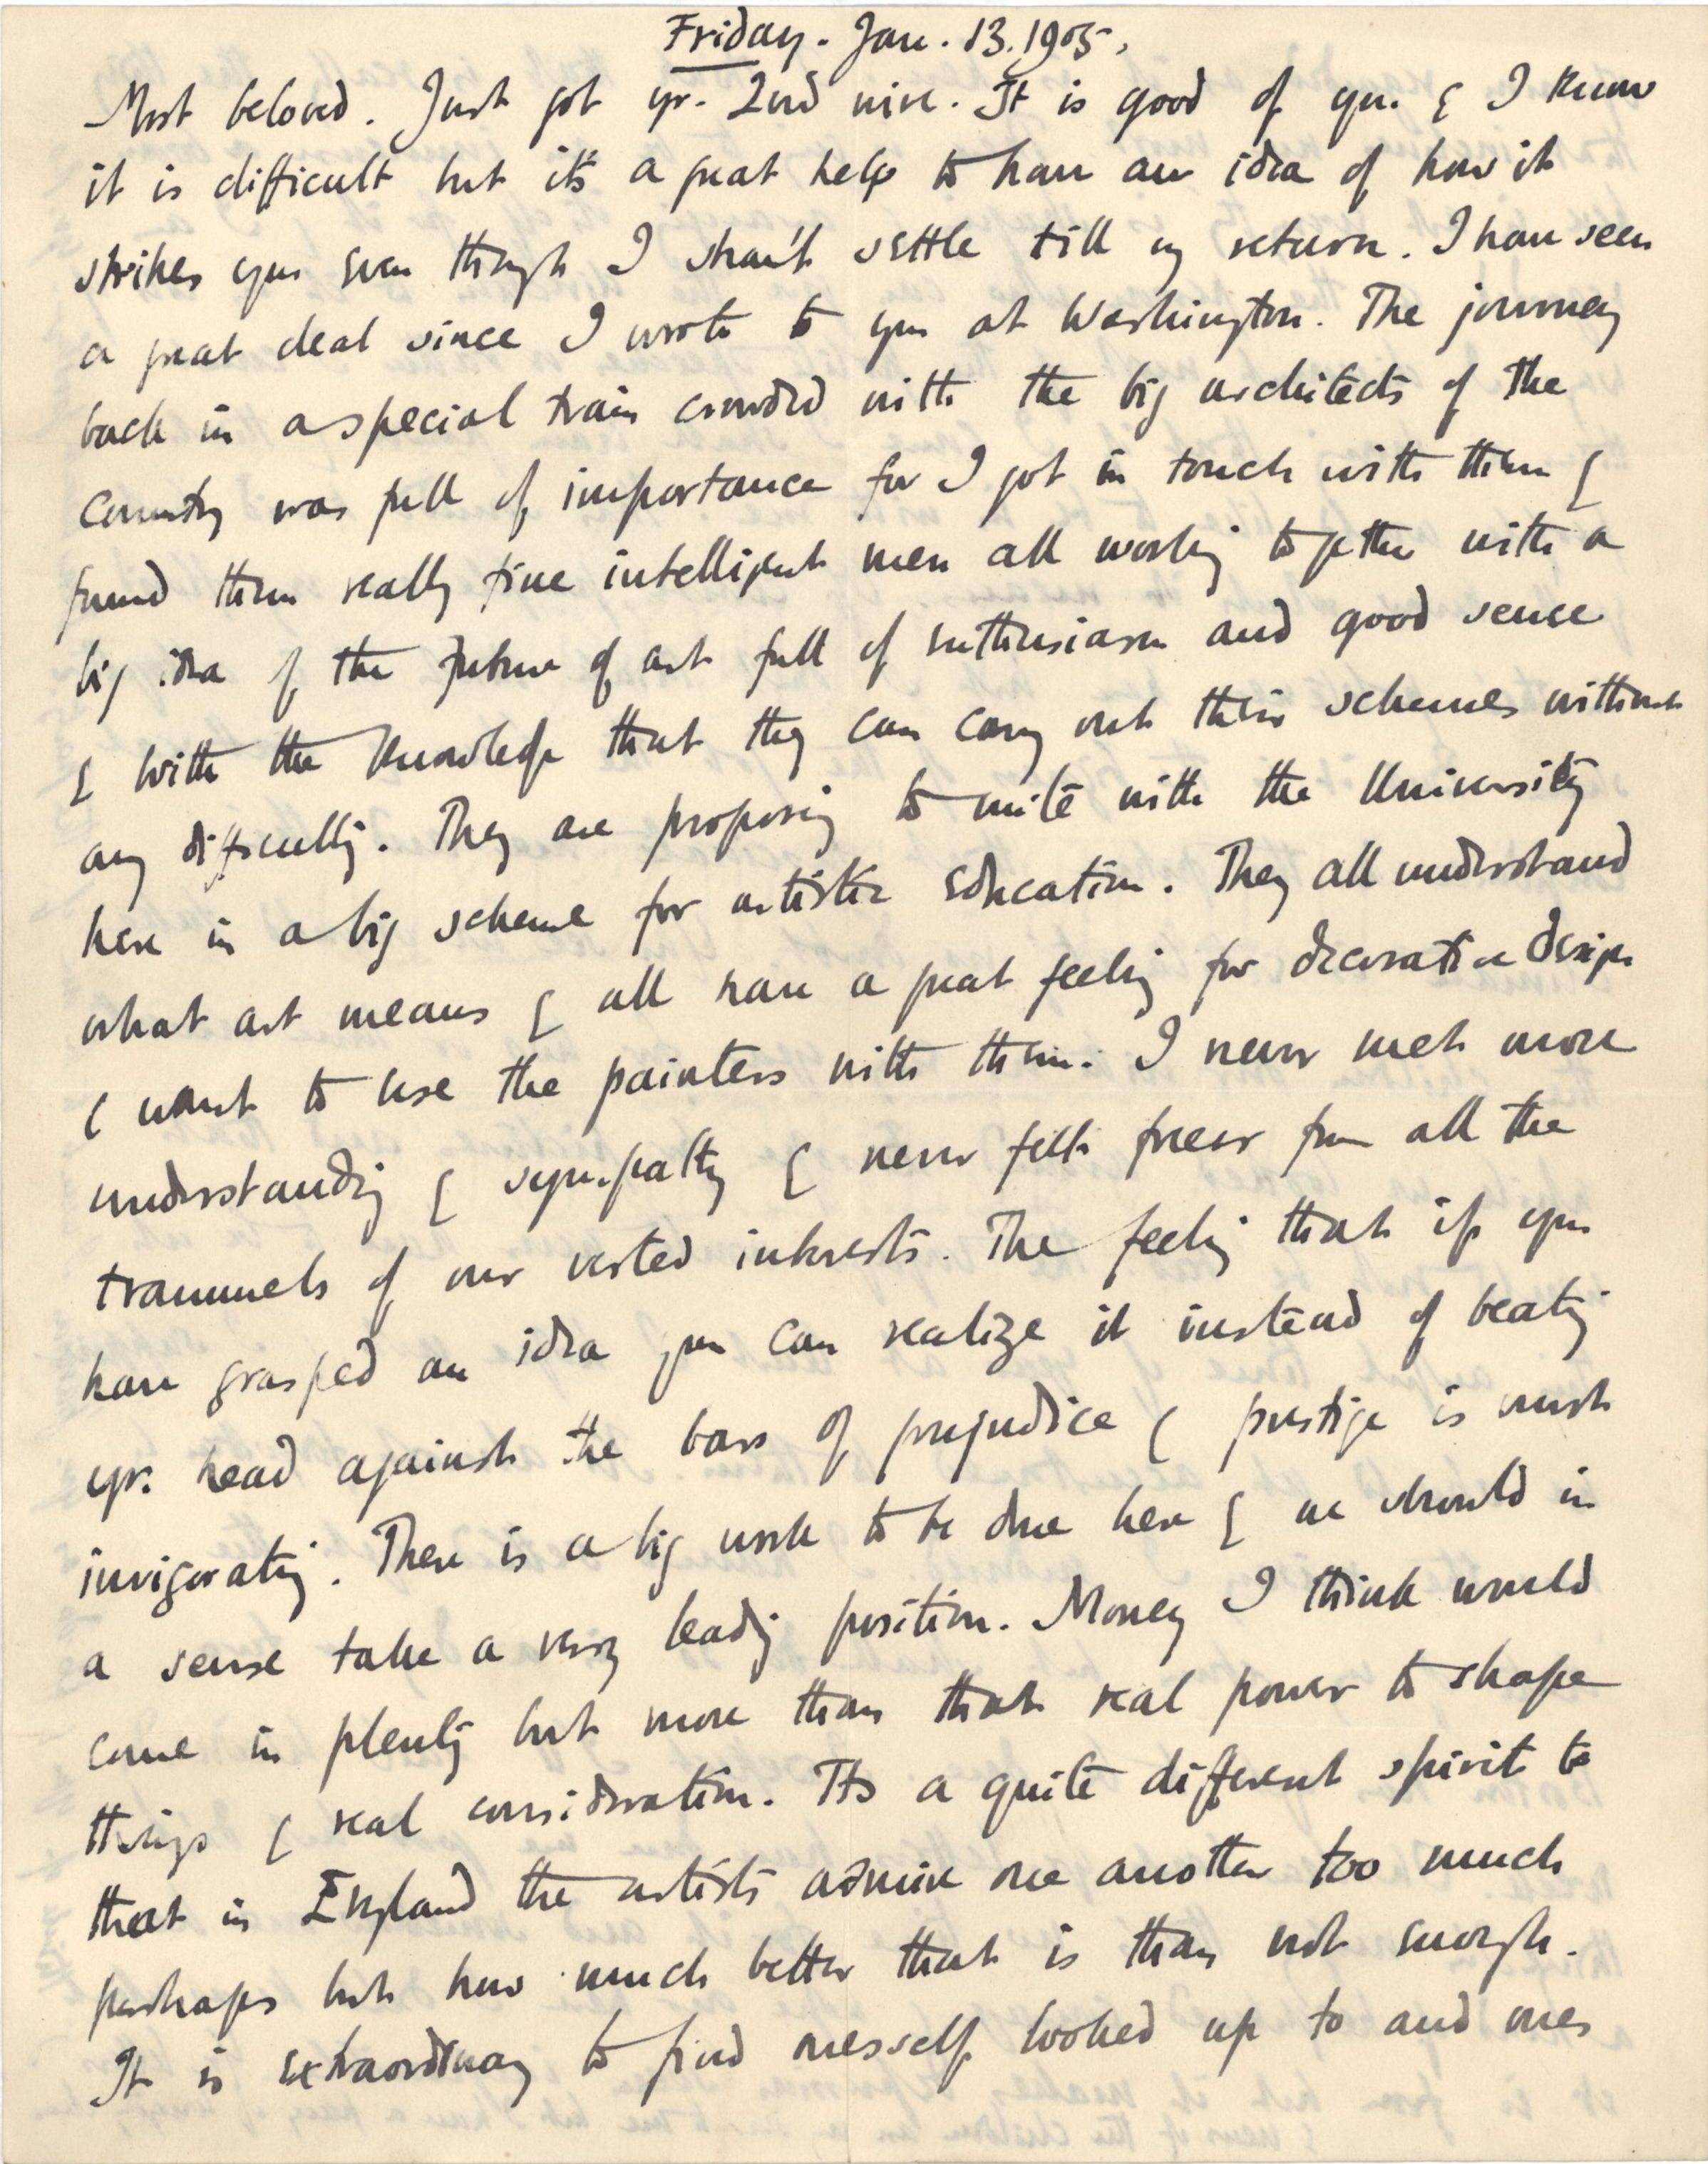 Friday. Jan. 13. 1905.
Most beloved. Just got yr. 2nd wire. It is good of you & I know
it is difficult but it's a great help to have an idea of how it
strikes you even though I shan't settle till my return. I have seen
a great deal since I wrote to you at Washington. The journey
back in a special train crowded with the big architects of the
country was full of importance for I got in touch with them &
found them really fine intelligent men all working together with a
big idea of the future of art full of enthusiasm and good sense
& with the knowledge that they can carry out their schemes without
any difficulty. They are proposing to unite with the University
here in a big scheme for artistic education. They all understand
what art means & all have a great feeling for decorative design
& want to use the painters with them. I never met more
understanding & sympathy & never felt freer from all the
trammels of our vested interests. The feeling that if you
have grasped an idea you can realize it instead of beating
yr. head against the bars of prejudice & prestige is most
invigorating. There is a big work to be done here & we should in
a sense take a very leading position. Money I think would
come in plenty but more than that real power to shape
things & real consideration. Its a quite different spirit to
that in England the artists admire one another too much
perhaps but how much better that is than not enough.
It is extraordinary to find onesself looked up to and ones